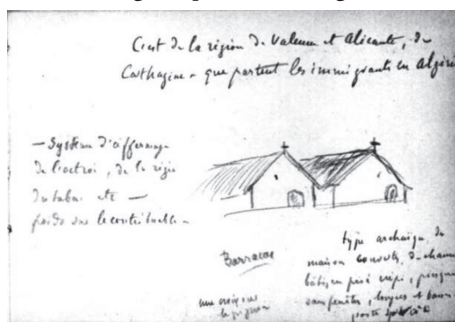 C'est de la région de Valence et Alicante, de
Carthagène que partent les immigrants en Algérie
— Système d'affermage
de l'octroi, de la régie
du tabac etc —
poids sur le contribuable —
Barracas
type archaïque de
maison couverte de chaume
bâties en pisé crépi, presque
sans fenêtres, longues et
porte
une croix sur
le pignon